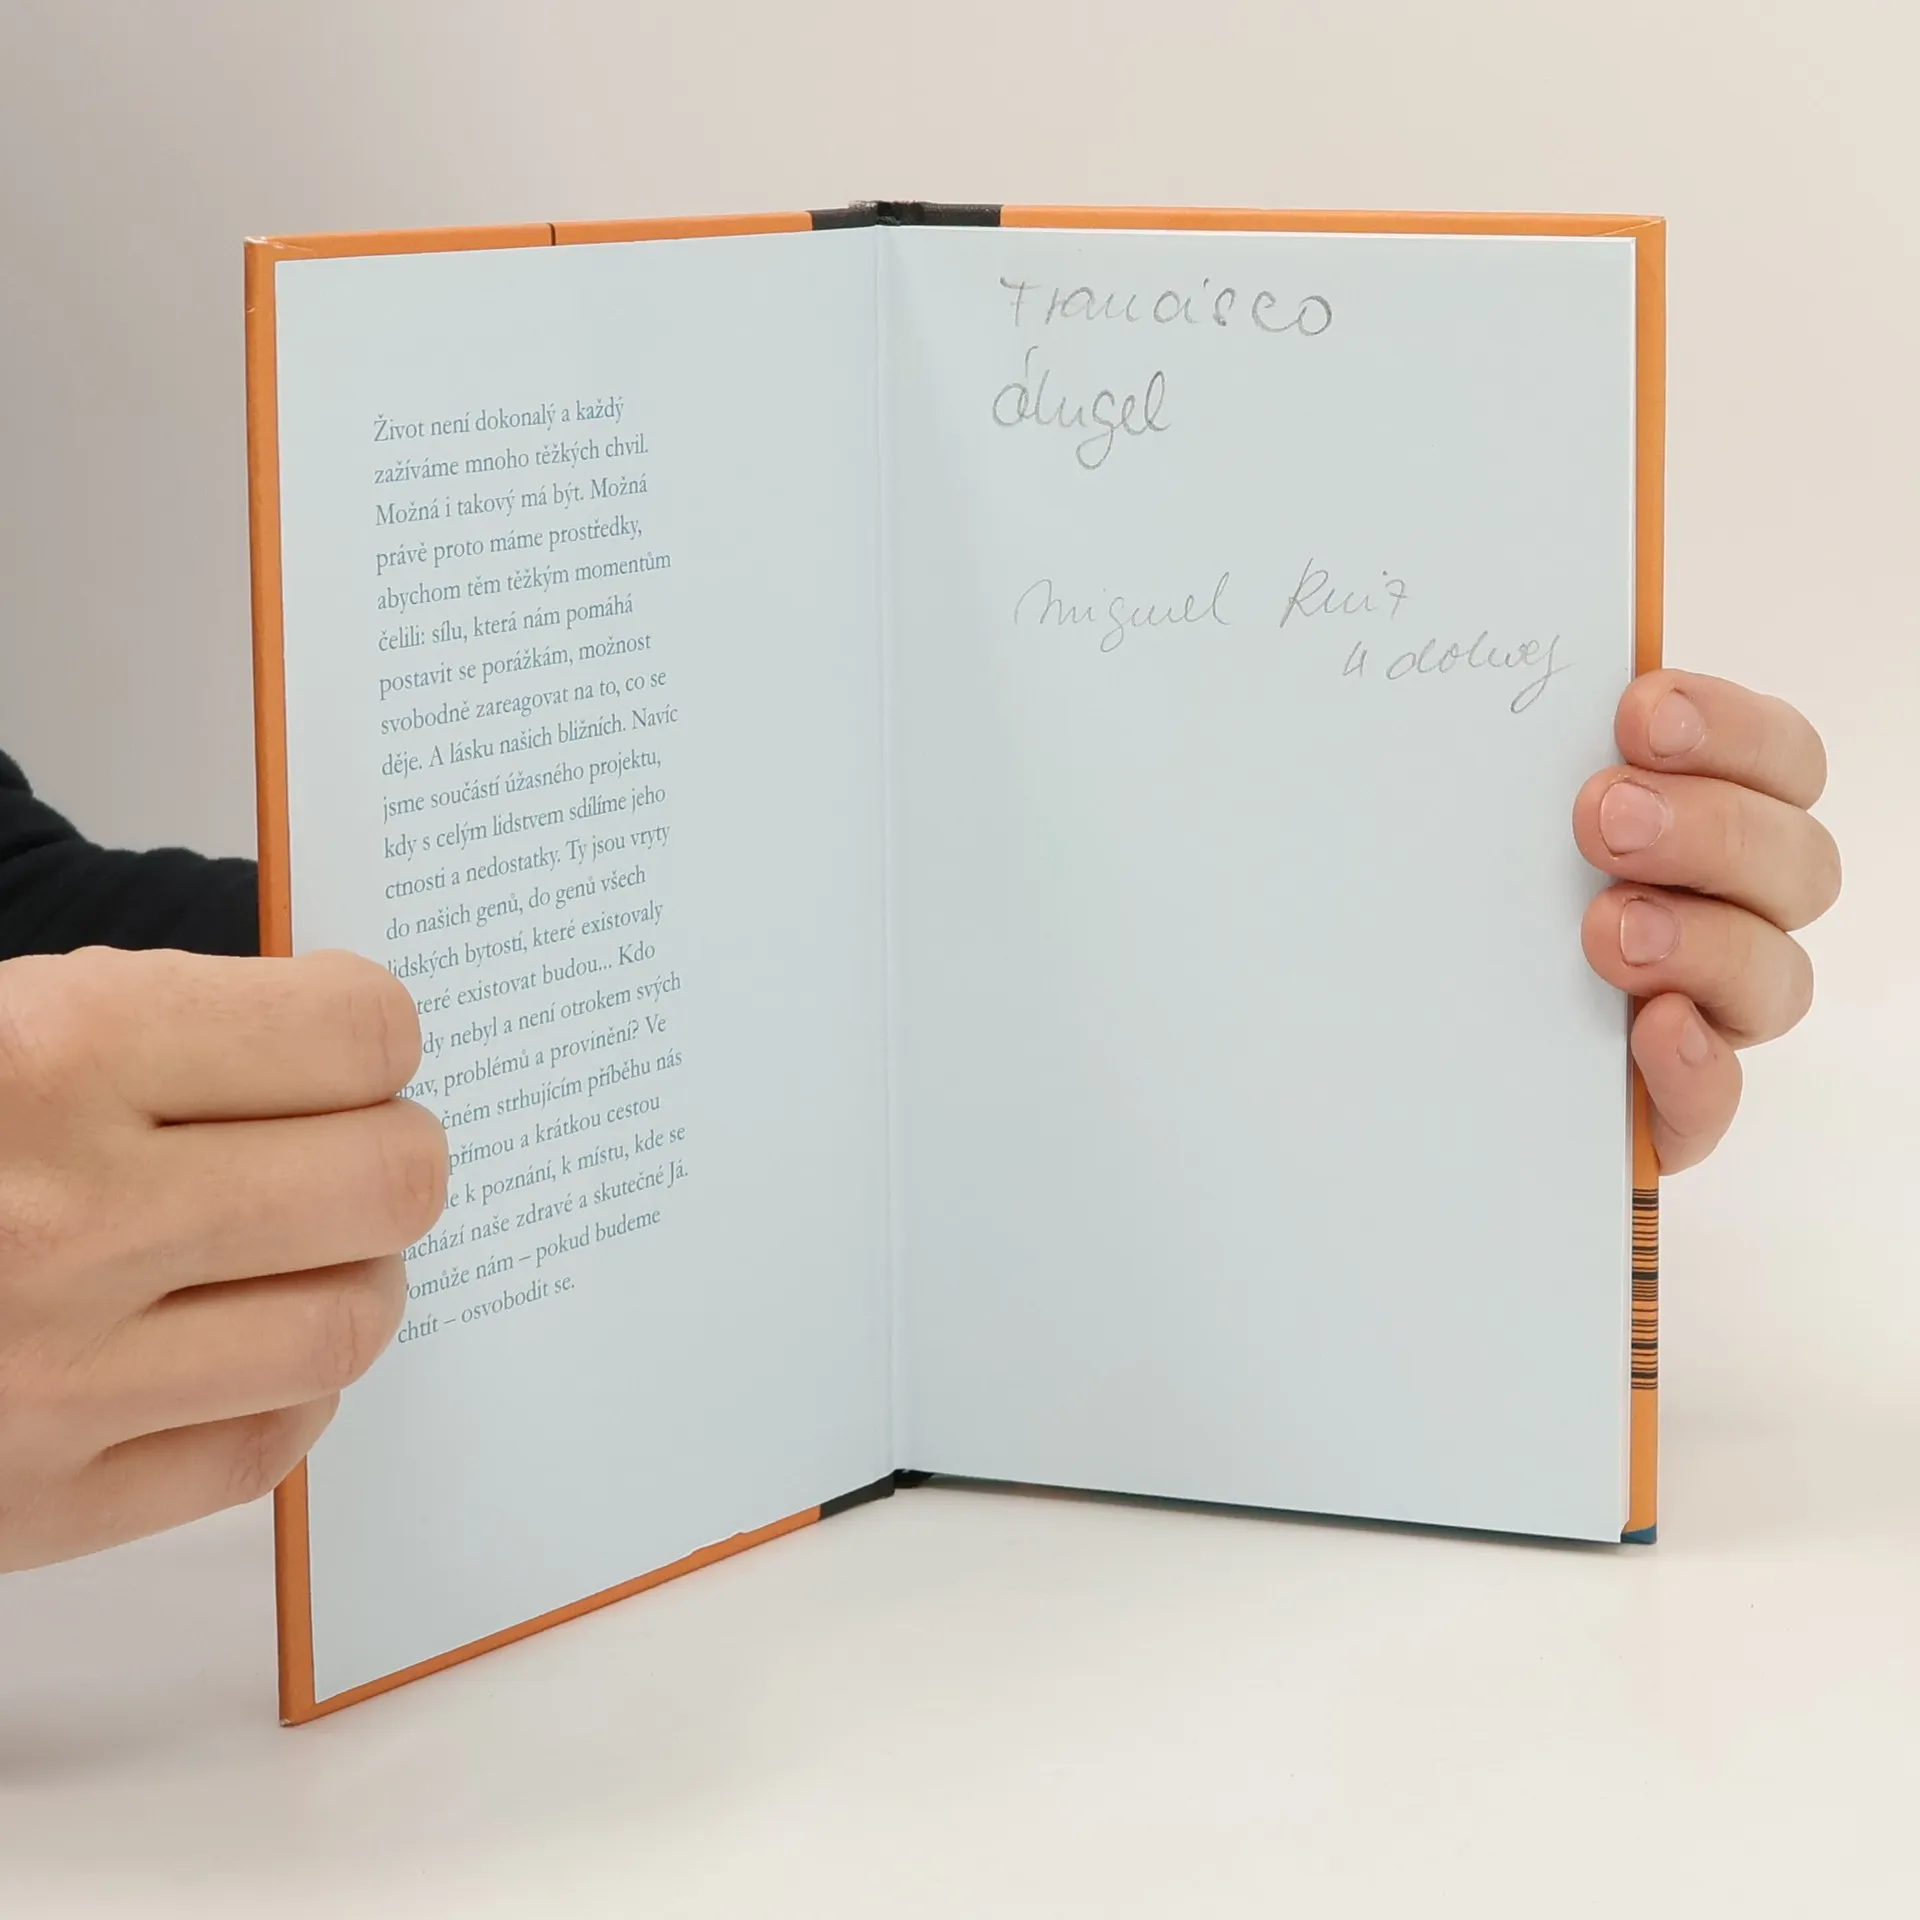 Život není dokonalý a každý
zažíváme mnoho těžkých chvil.
Možná i takový má být. Možná
právě proto máme prostředky,
abychom těm těžkým momentům
čelili: sílu, která nám pomáhá
postavit se porážkám, možnost
svobodně zareagovat na to, co se
děje. A lásku našich bližních. Navíc
jsme součástí úžasného projektu,
kdy s celým lidstvem sdílíme jeho
ctnosti a nedostatky. Ty jsou vryty
do našich genů, do genů všech
lidských bytostí, které existovaly
které existovat budou... Kdo
dy nebyl a není otrokem svých
bav, problémů a provinění? Ve
čném strhujícím příběhu nás
přímou a krátkou cestou
le k poznání, k místu, kde se
nachází naše zdravé a skutečné Já.
Pomůže nám – pokud budeme
chtít – osvobodit se.
Francisco
Ángel
Miguel Ruiz
4 dohody